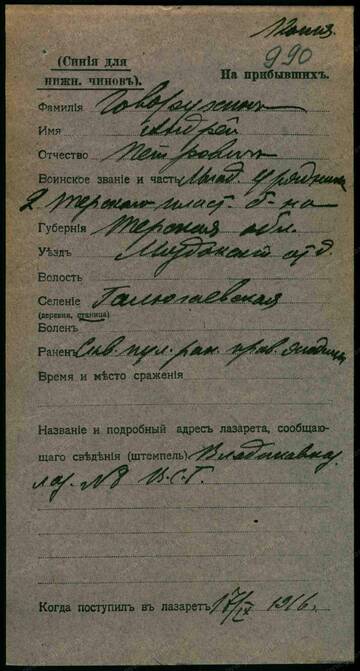 Копия.
990
(Синія для
нижн. чиновъ).
На прибывшихъ.
Фамилія Говорухинъ
Имя Андрей
Отчество Петровичъ
Воинское званіе и часть Млад. урядникъ
2 Терского пласт. б-на
Губернія Терская обл.
Уѣздъ Моздокскій отд.
Волость
Селеніе Галюгаевская
(деревня, станица)
Боленъ
Раненъ пул. ран. прав.
Время и мѣсто сраженія
Названіе и подробный адресъ лазарета, сообщаю-
щаго свѣдѣнія (штемпель) Владикавказ.
лаз. №8 В.С.Г.
Когда поступилъ въ лазаретъ 17/IX 1916 г.